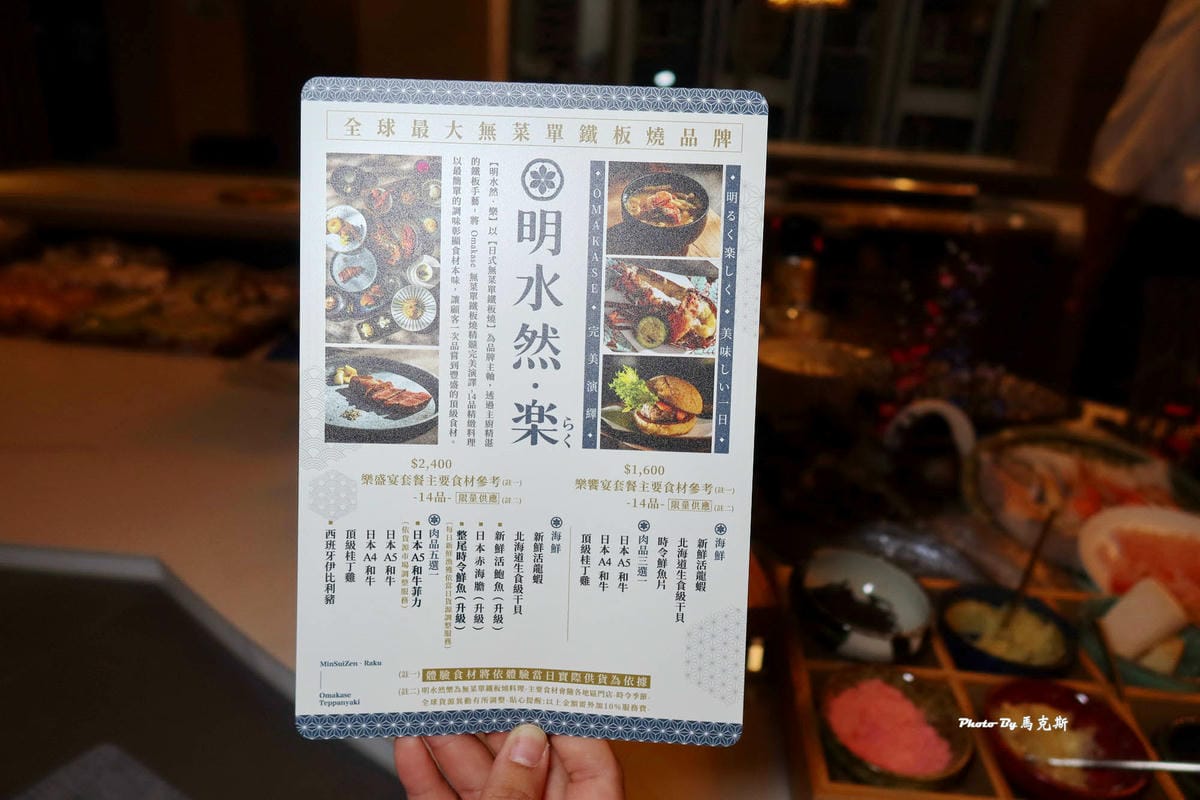 全球最大無菜單鐵板燒品牌
明るく楽しく ◆ 美味しい一日
OMAKASE ◆ 完美演繹
明水然·楽
らく
【明水然·樂】以【日式無菜單鐵板燒】為品牌主軸，透過主廚精湛
的鐵板手藝，將 Omakase 無菜單鐵板燒精髓完美演譯，14品精緻料理
以最簡單的調味彰顯食材本味，讓顧客一次品嘗到豐盛的頂級食材。
$1,600
樂饗宴套餐主要食材參考(註一)
-14品- 限量供應 (註二)
海鮮
新鮮活龍蝦
北海道生食級干貝
時令鮮魚片
肉品三選一
日本A5和牛
日本A4和牛
頂級桂丁雞
$2,400
樂盛宴套餐主要食材參考(註一)
-14品- 限量供應 (註二)
海鮮
新鮮活龍蝦
北海道生食級干貝
新鮮活鮑魚（升級）
日本赤海膽（升級）
整尾時令鮮魚（升級）
(每日新鮮漁獲依當日貨源調整服務)
肉品五選一
日本A5和牛菲力
(依貨源市場調整服務)
日本A5和牛
日本A4和牛
頂級桂丁雞
西班牙伊比利豬
MinSuiZen · Raku
Omakase
Teppanyaki
(註一) 體驗食材將依體驗當日實際供貨為依據
(註二) 明水然樂為無菜單鐵板燒料理，主要食材會隨各地區門店，時令季節，
全球貨源異動有所調整，貼心提醒：以上金額需外加10%服務費。
Photo By 馬克斯